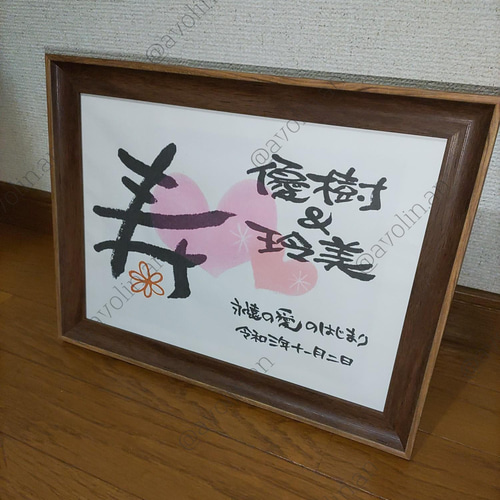 寿
優樹
&
玲美
永遠の愛のはじまり
令和三年十一月二日
@avolin.an